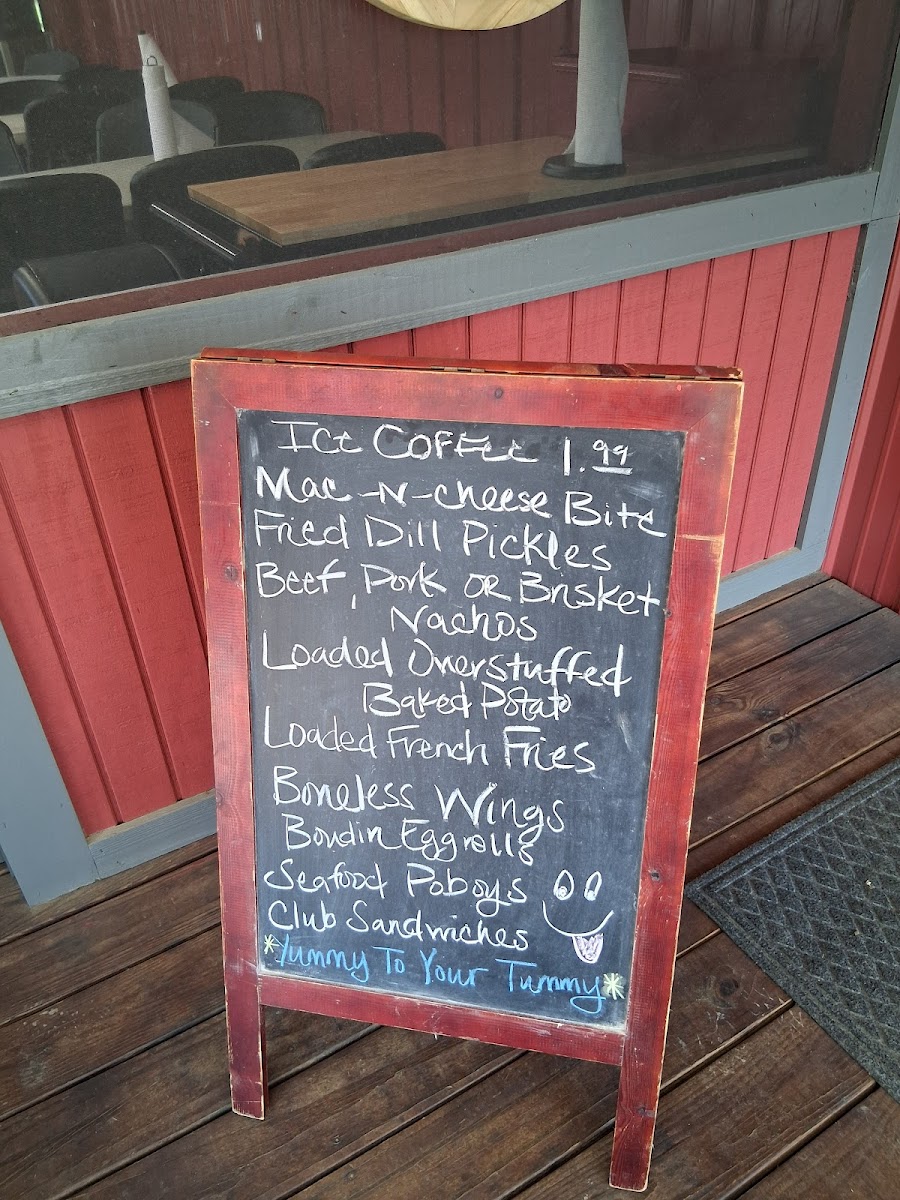 Ice Coffee 1.99
Mac-N-cheese Bite
Fried Dill Pickles
Beef, Pork or Brisket
Nachos
Loaded Overstuffed
Baked Potato
Loaded French Fries
Boneless Wings
Boudin Eggrolls
Seafood Poboys
Club Sandwiches
*Yummy To Your Tummy*